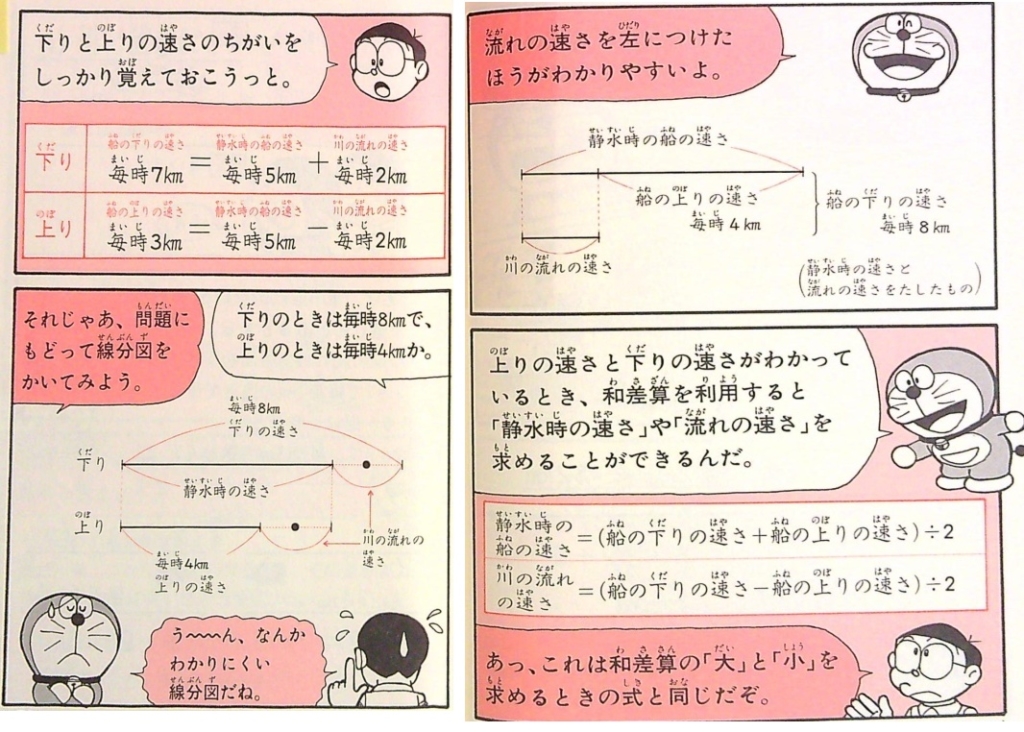 下りと上りの速さのちがいを
しっかり覚えておこうっと。
下り
船の下りの速さ 静水時の船の速さ 川の流れの速さ
毎時7km = 毎時5km + 毎時2km
上り
船の上りの速さ 静水時の船の速さ 川の流れの速さ
毎時3km = 毎時5km − 毎時2km
それじゃあ、問題に
もどって線分図を
かいてみよう。
下りのときは毎時8kmで、
上りのときは毎時4kmか。
毎時8km
下りの速さ
下り
静水時の速さ
上り
川の流れの
速さ
毎時4km
上りの速さ
う〜〜ん、なんか
わかりにくい
線分図だね。
流れの速さを左につけた
ほうがわかりやすいよ。
静水時の船の速さ
船の上りの速さ
毎時4km
船の下りの速さ
毎時8km
川の流れの速さ
(静水時の速さと
流れの速さをたしたもの)
上りの速さと下りの速さがわかって
いるとき、和差算を利用すると
「静水時の速さ」や「流れの速さ」を
求めることができるんだ。
静水時の
船の速さ =(船の下りの速さ+船の上りの速さ)÷2
川の流れ
の速さ =(船の下りの速さ−船の上りの速さ)÷2
あっ、これは和差算の「大」と「小」を
求めるときの式と同じだぞ。